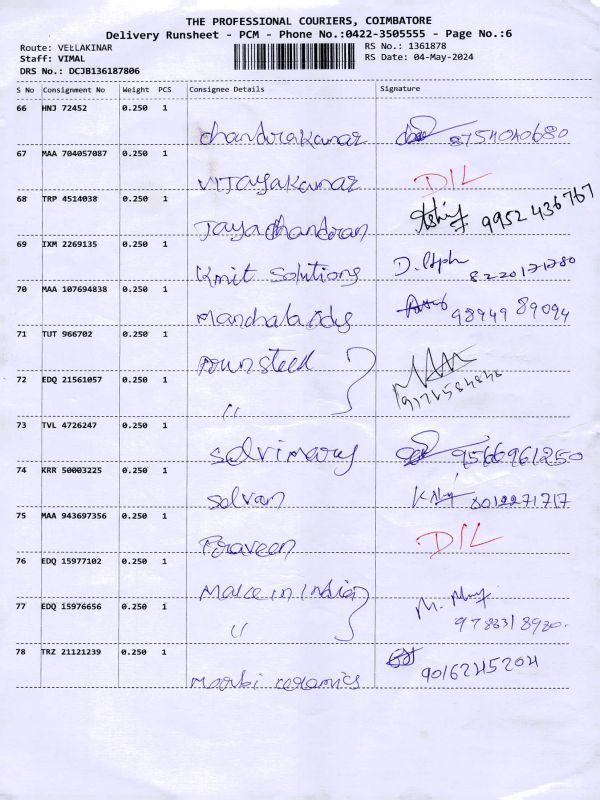 THE PROFESSIONAL COURIERS, COIMBATORE
Delivery Runsheet - PCM - Phone No.:0422-3505555 - Page No.:6
Route: VELLAKINAR RS No.: 1361878
Staff: VIMAL RS Date: 04-May-2024
DRS No.: DCJB136187806
S No Consignment No Weight PCS Consignee Details Signature
66 HNJ 72452 0.250 1
chandrakumar 8754040680
67 MAA 704057087 0.250 1
Vijayakumar DIL
68 TRP 4514038 0.250 1
Jayachandran 9952436767
69 IXM 2269135 0.250 1
Kmit Solutions
70 MAA 107694838 0.250 1
98949 89094
71 TUT 966702 0.250 1
72 EDQ 21561057 0.250 1
"
73 TVL 4726247 0.250 1
Selvimary 9566961250
74 KRR 50003225 0.250 1
Selvan
75 MAA 943697356 0.250 1
Praveen DIL
76 EDQ 15977102 0.250 1
Make in India
77 EDQ 15976656 0.250 1
"
78 TRZ 21121239 0.250 1
ceramics